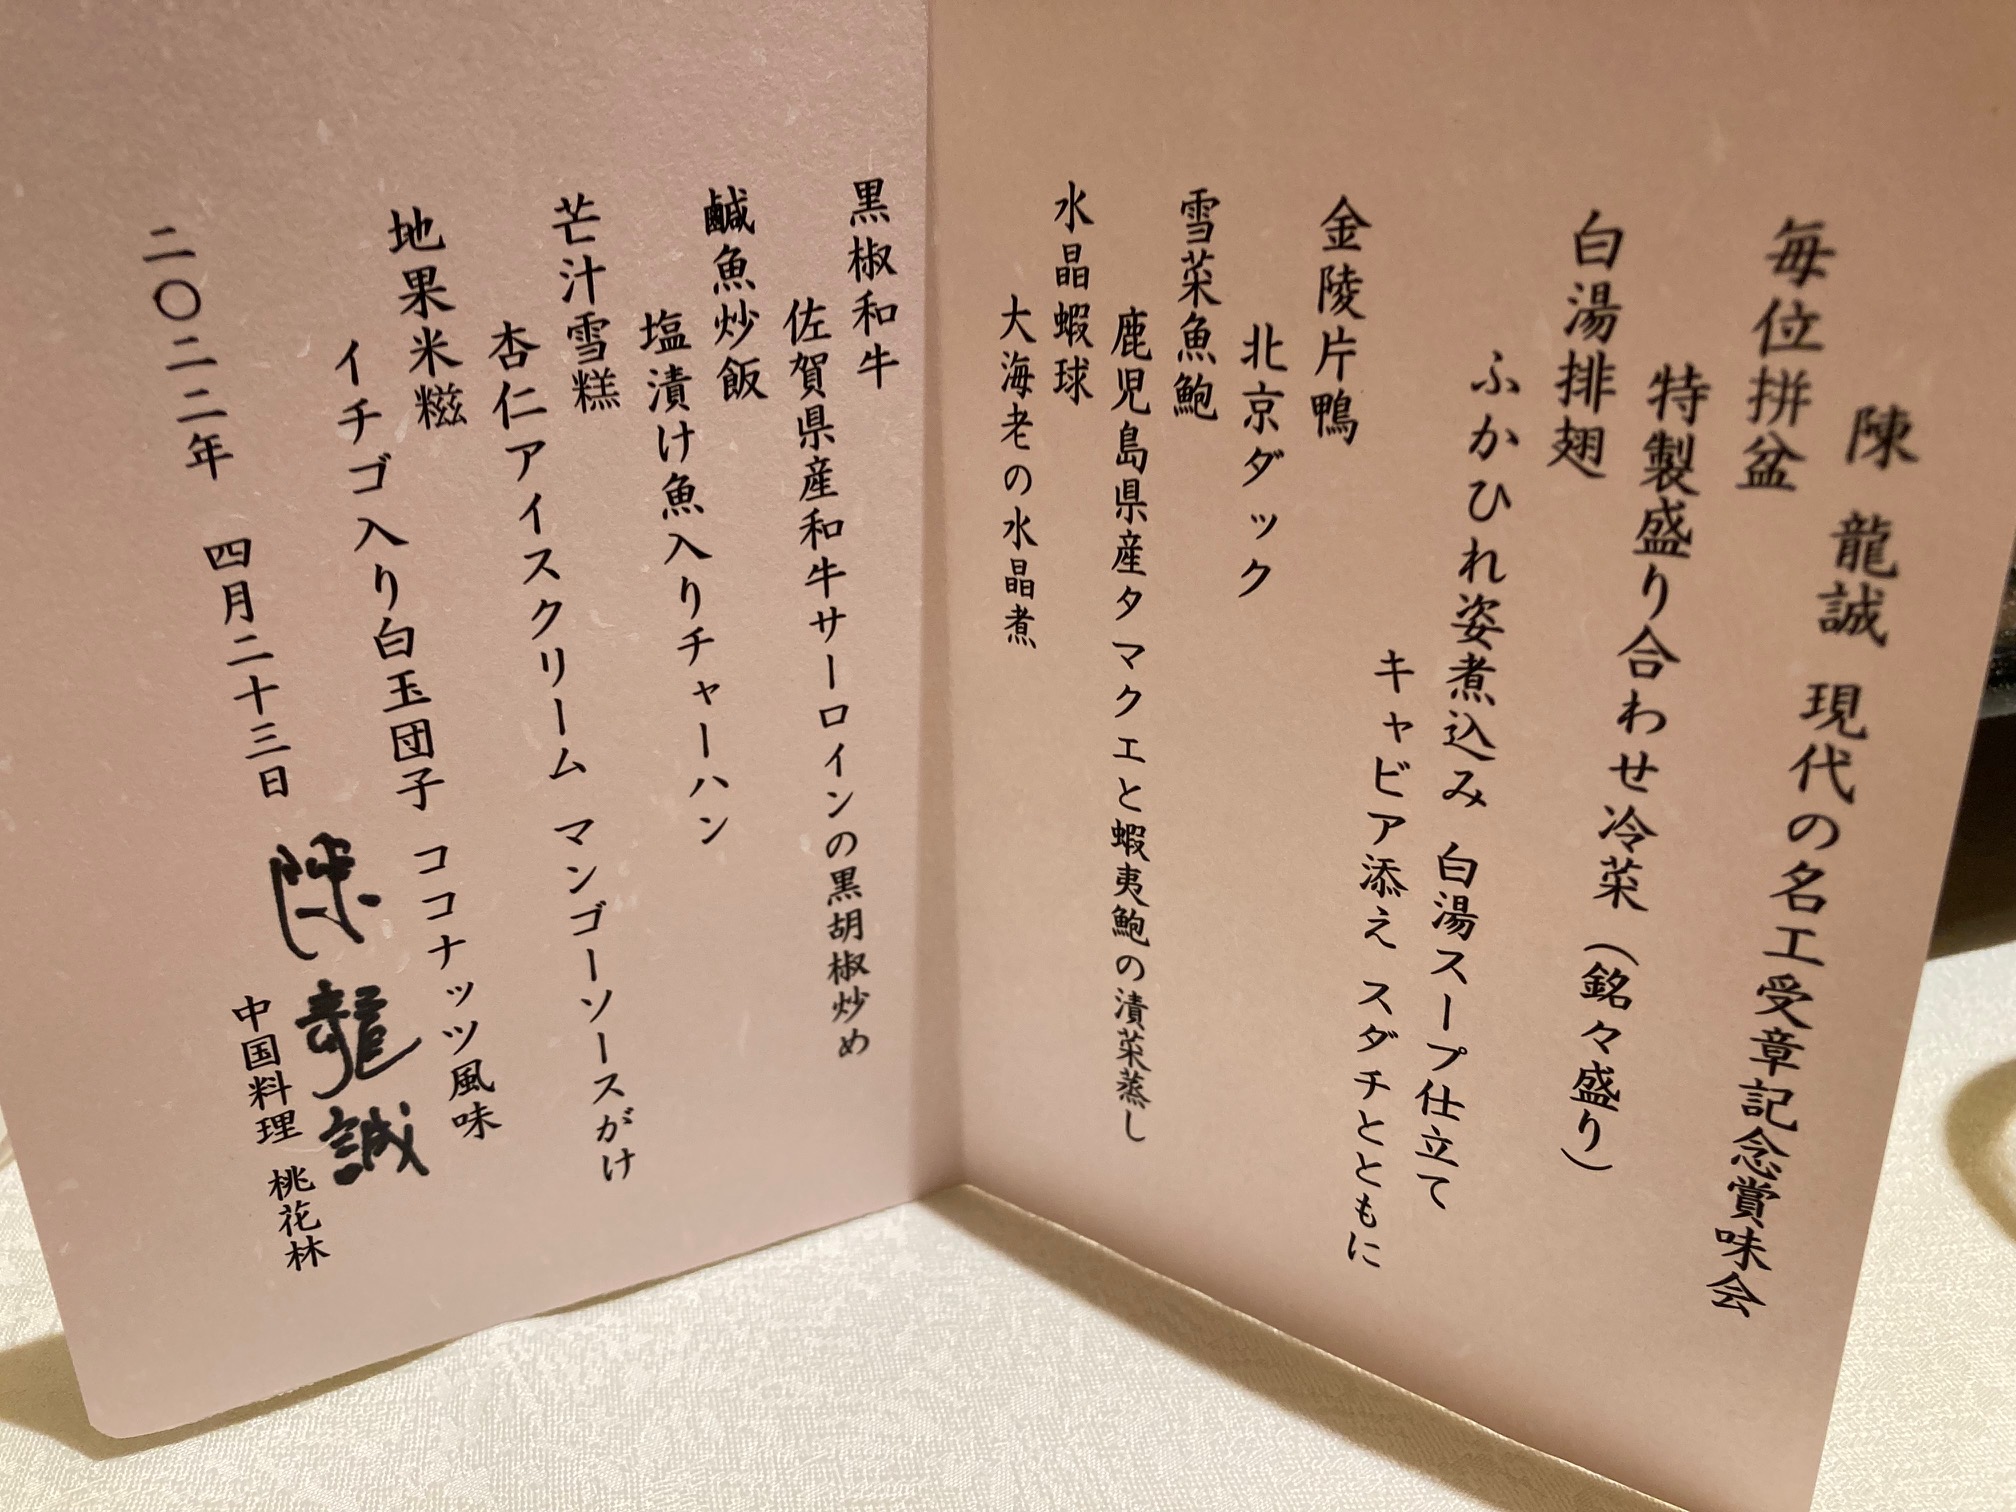 陳 龍誠 現代の名工受章記念賞味会
毎位拼盆
特製盛り合わせ冷菜（銘々盛り）
白湯排翅
ふかひれ姿煮込み 白湯スープ仕立て
キャビア添え スダチとともに
金陵片鴨
北京ダック
雪菜魚鮑
鹿児島県産タマクエと蝦夷鮑の漬菜蒸し
水晶蝦球
大海老の水晶煮
黒椒和牛
佐賀県産和牛サーロインの黒胡椒炒め
鹹魚炒飯
塩漬け魚入りチャーハン
芒汁雪糕
杏仁アイスクリーム マンゴーソースがけ
地果米糍
イチゴ入り白玉団子 ココナッツ風味
二〇二二年 四月二十三日
陳龍誠
中国料理 桃花林